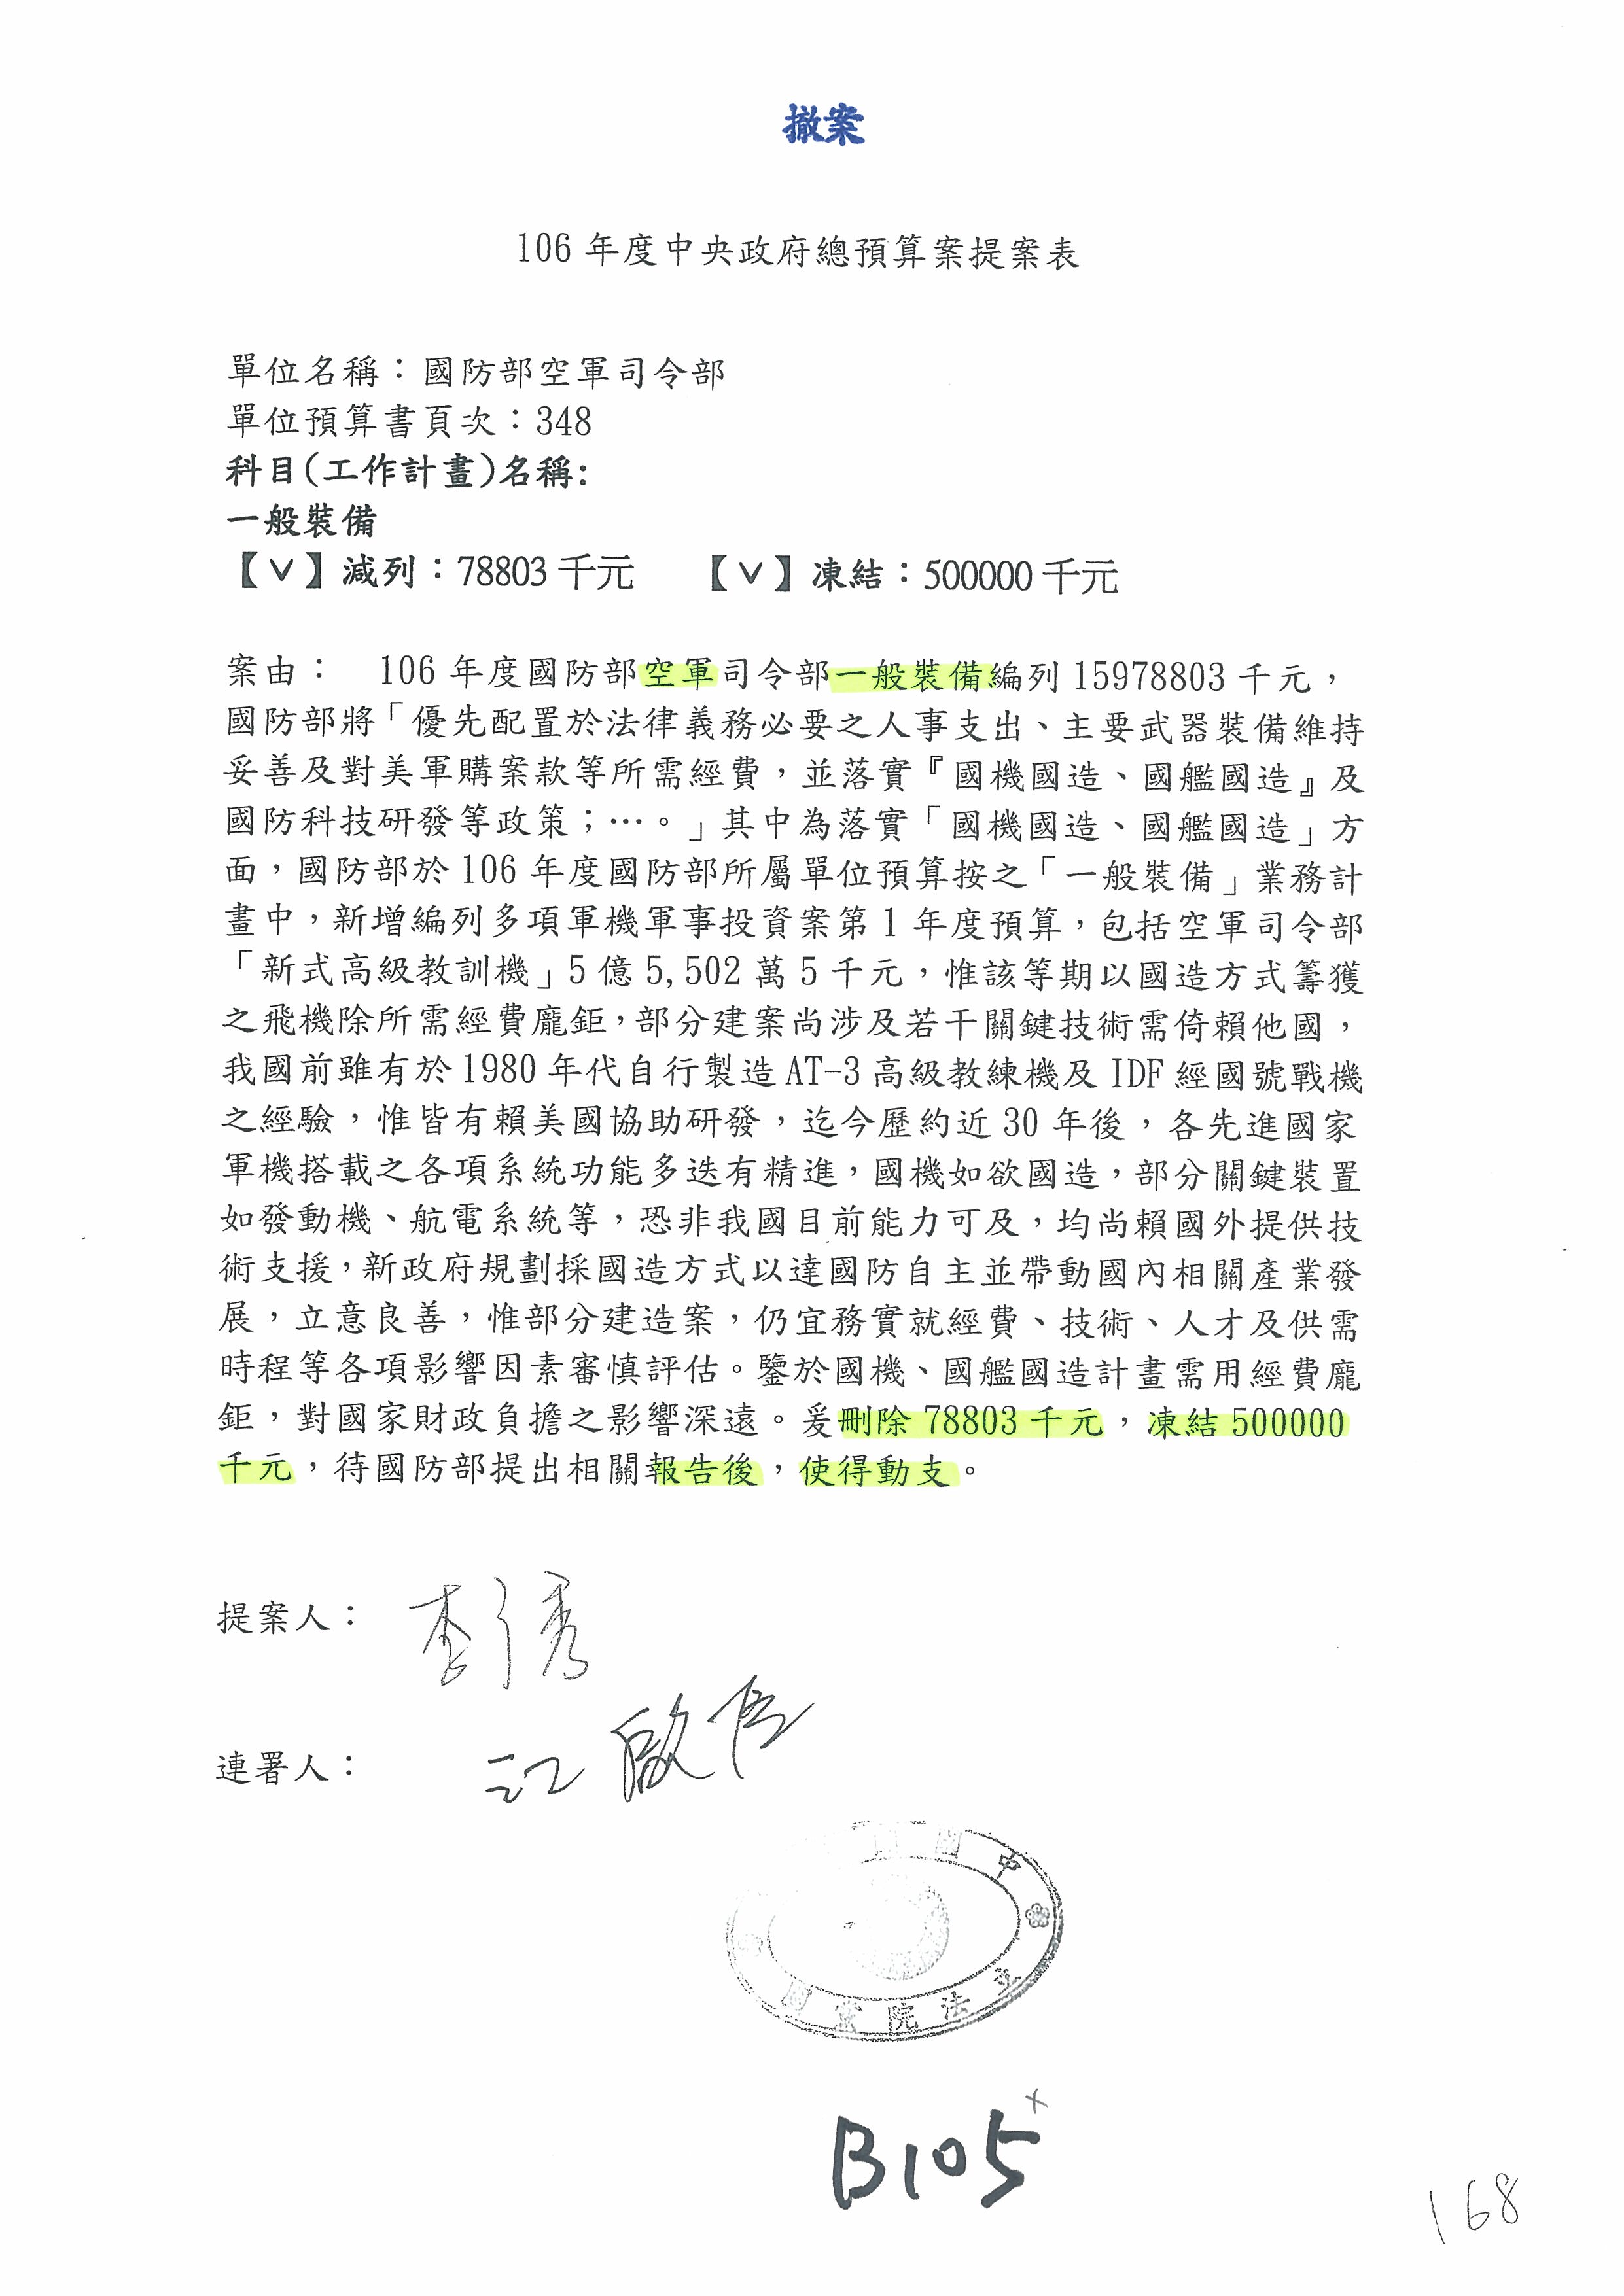 撤案
106 年度中央政府總預算案提案表
單位名稱：國防部空軍司令部
單位預算書頁次：348
科目(工作計畫)名稱:
一般裝備
【∨】減列：78803 千元 【∨】凍結：500000 千元
案由： 106 年度國防部空軍司令部一般裝備編列 15978803 千元，
國防部將「優先配置於法律義務必要之人事支出、主要武器裝備維持
妥善及對美軍購案款等所需經費，並落實『國機國造、國艦國造』及
國防科技研發等政策；…。」其中為落實「國機國造、國艦國造」方
面，國防部於 106 年度國防部所屬單位預算按之「一般裝備」業務計
畫中，新增編列多項軍機軍事投資案第 1 年度預算，包括空軍司令部
「新式高級教訓機」5 億 5,502 萬 5 千元，惟該等期以國造方式籌獲
之飛機除所需經費龐鉅，部分建案尚涉及若干關鍵技術需倚賴他國，
我國前雖有於 1980 年代自行製造 AT-3 高級教練機及 IDF 經國號戰機
之經驗，惟皆有賴美國協助研發，迄今歷約近 30 年後，各先進國家
軍機搭載之各項系統功能多迭有精進，國機如欲國造，部分關鍵裝置
如發動機、航電系統等，恐非我國目前能力可及，均尚賴國外提供技
術支援，新政府規劃採國造方式以達國防自主並帶動國內相關產業發
展，立意良善，惟部分建造案，仍宜務實就經費、技術、人才及供需
時程等各項影響因素審慎評估。鑒於國機、國艦國造計畫需用經費龐
鉅，對國家財政負擔之影響深遠。爰刪除 78803 千元，凍結 500000
千元，待國防部提出相關報告後，使得動支。
提案人：
連署人： 江啟臣
中國 立法院黨團
B105
168